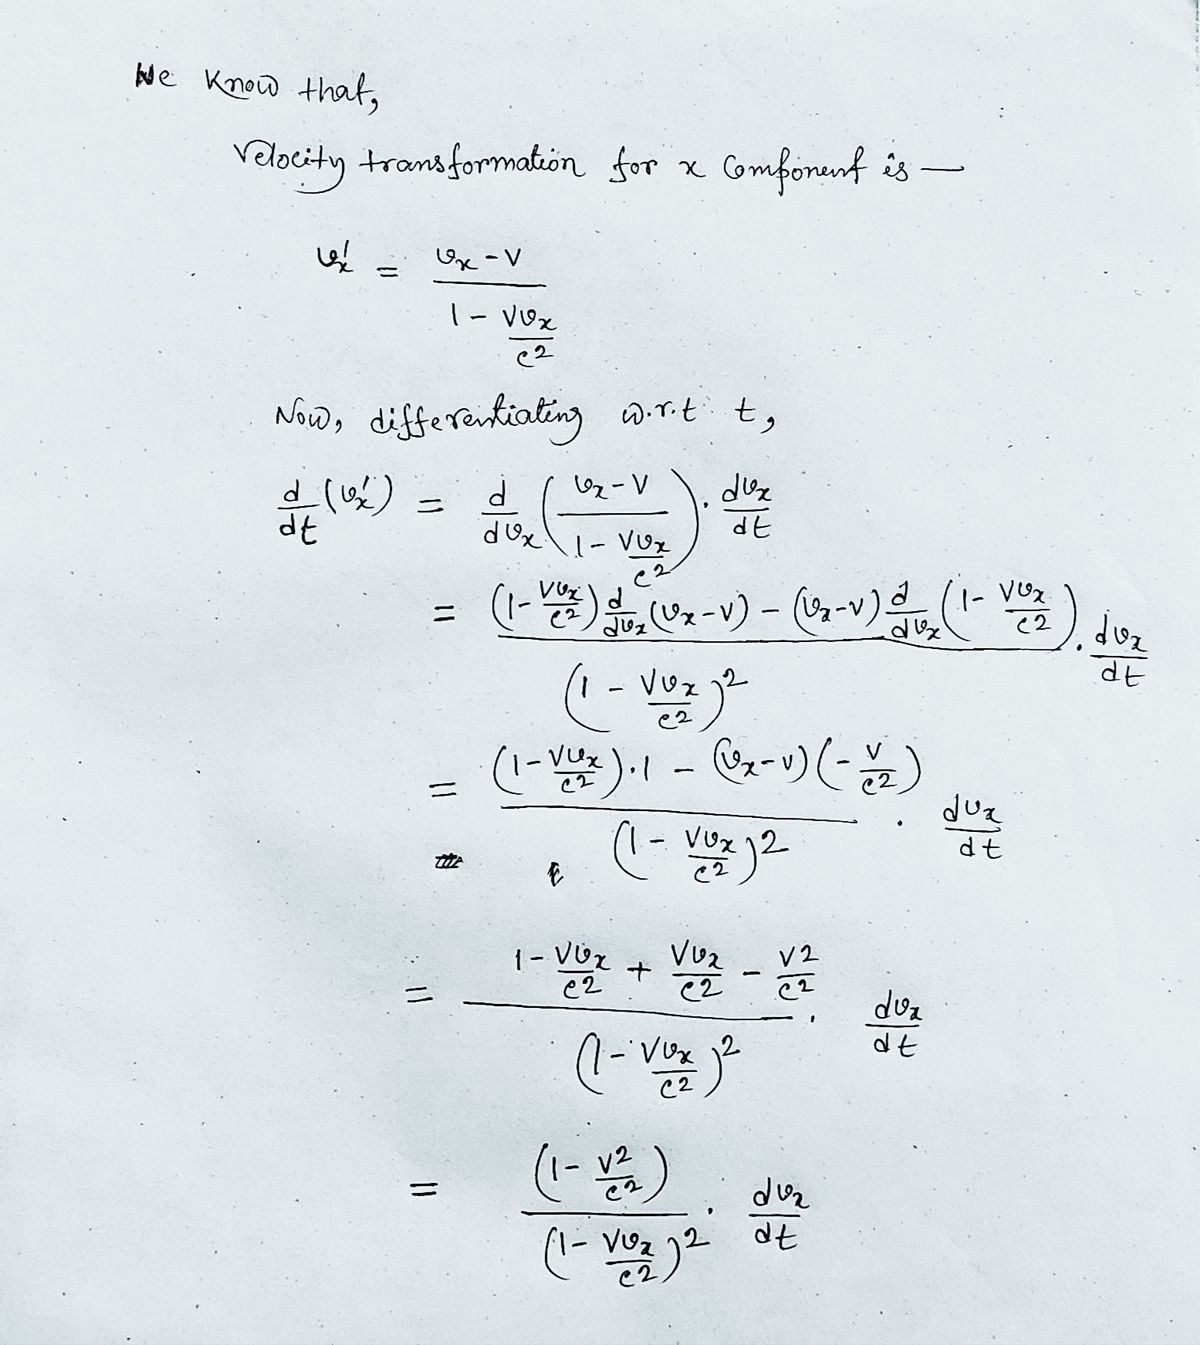 We know that,
Velocity transformation for x component is —
vₓ' = (vₓ - V) / (1 - Vvₓ/c²)
Now, differentiating w.r.t t,
d/dt (vₓ') = d/dvₓ ((vₓ - V) / (1 - Vvₓ/c²)) . dvₓ/dt
= ((1 - Vvₓ/c²) d/dvₓ (vₓ - V) - (vₓ - V) d/dvₓ (1 - Vvₓ/c²)) / (1 - Vvₓ/c²)² . dvₓ/dt
= ((1 - Vvₓ/c²).1 - (vₓ - V)(-V/c²)) / (1 - Vvₓ/c²)² . dvₓ/dt
= (1 - Vvₓ/c² + Vvₓ/c² - V²/c²) / (1 - Vvₓ/c²)² . dvₓ/dt
= (1 - V²/c²) / (1 - Vvₓ/c²)² . dvₓ/dt